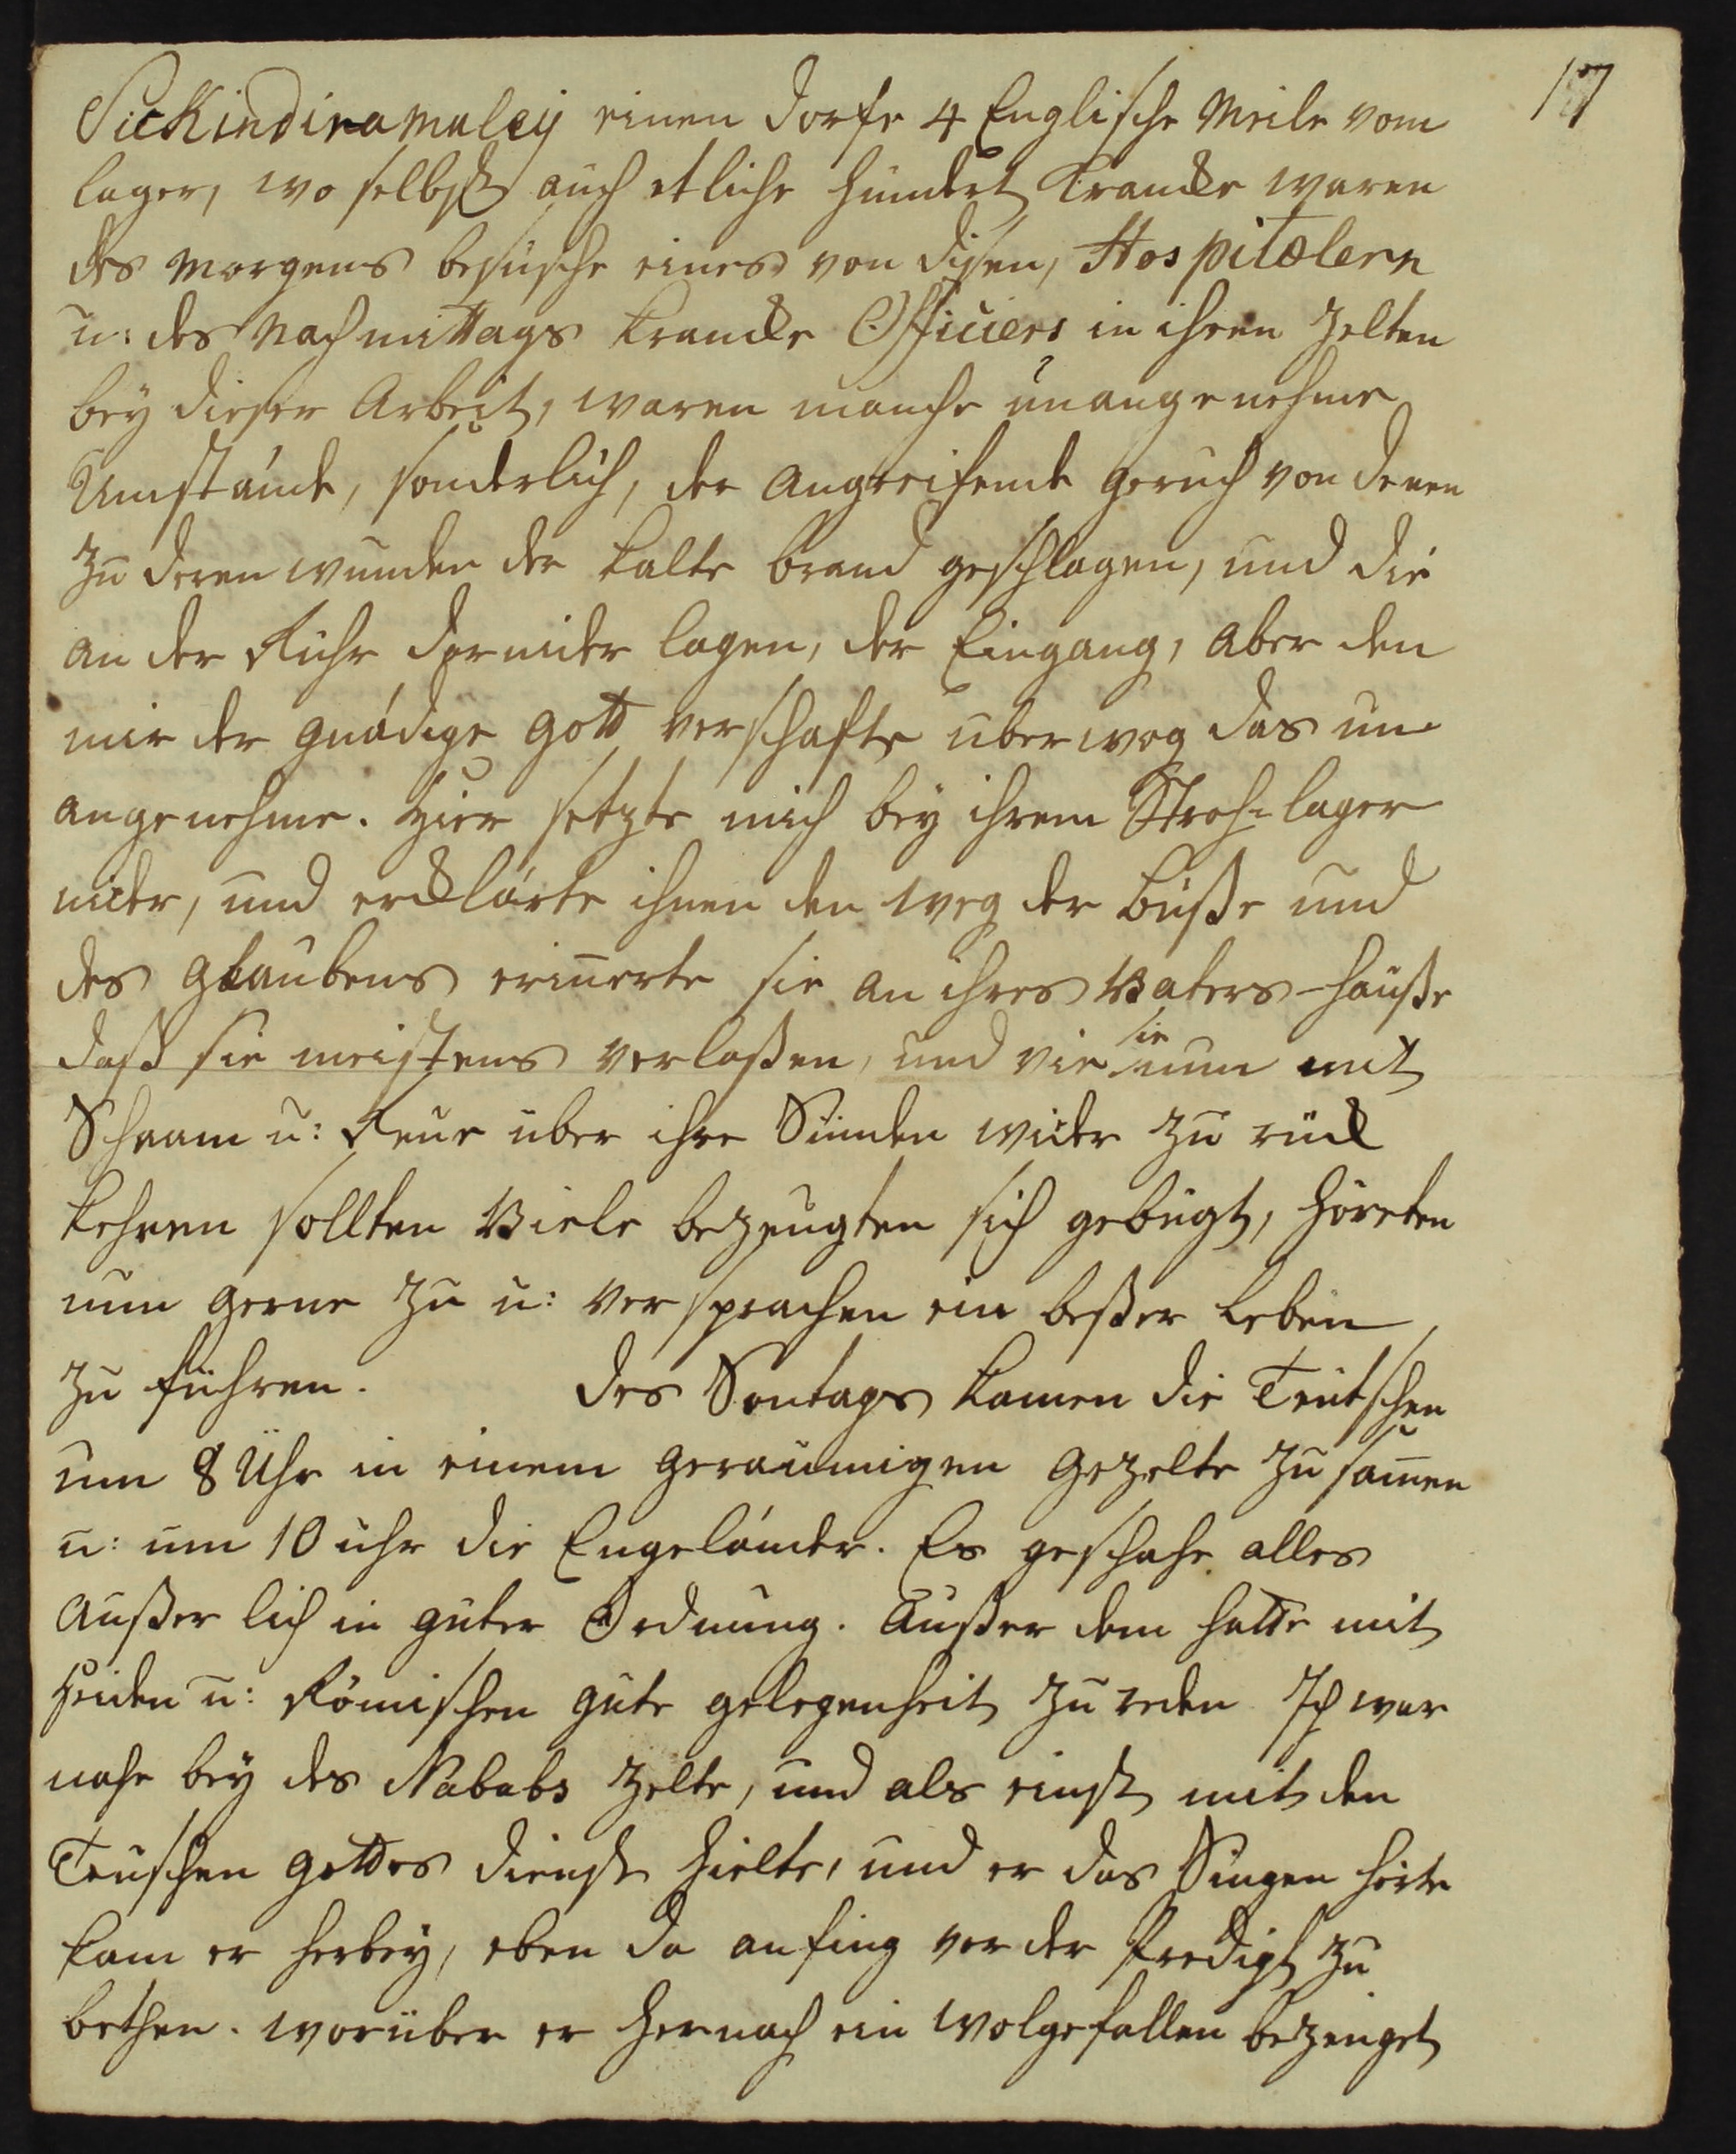 17
Sickindiramaley einen Dorfe 4 Englische Meile vom
lager, wo selbst auch etliche hundert Krancke waren
des Morgens besuche eines von disen, Hospitælern
u: des Nachmittags Krancke Officiers in ihren Zelten
bey dieser Arbeit, waren manche unangenehme
Umstände, sonderlich, der angreifende geruch von denen
zu deren wunden der kalte brand geschlagen, und die
an der Ruhr dernider lagen, der Eingang, aber den
mir der gnädige Gott verschafte uberwog das un-
angenehme. Hier setzte mich bey ihrem Stroh-lager
nider, und ercklärte ihnen den Weg der Buße und
des glaubens erinerte sie an ihres Vaters-hauße
daß sie meistens verlaßen, und wie sie nun mit
Schaam u: Reue uber ihre Sünden wider zu rück
kehren sollten Viele bezeugten sich gebügt, höreten
nun gerne zu u: versprachen ein beßer Leben
zu führen. Des Sontags kamen die Teutschen
um 8 Uhr in einem geraumigen gezelte zu samen
u: um 10 uhr die Engeländer. Es geschahe alles
außer lich in guter Ordnung. Außer dem hatte mit
Heiden u: Römischen gute gelegenheit zu reden Ich war
nahe bey des Nababs Zelte, und als einst mit den
Teuschen gottes dienst hielte, und er das Singen hörte
kam er herbey, eben da anfing vor der Predigt zu
bethen. worüber er hernach ein wolgefallen bezeuget